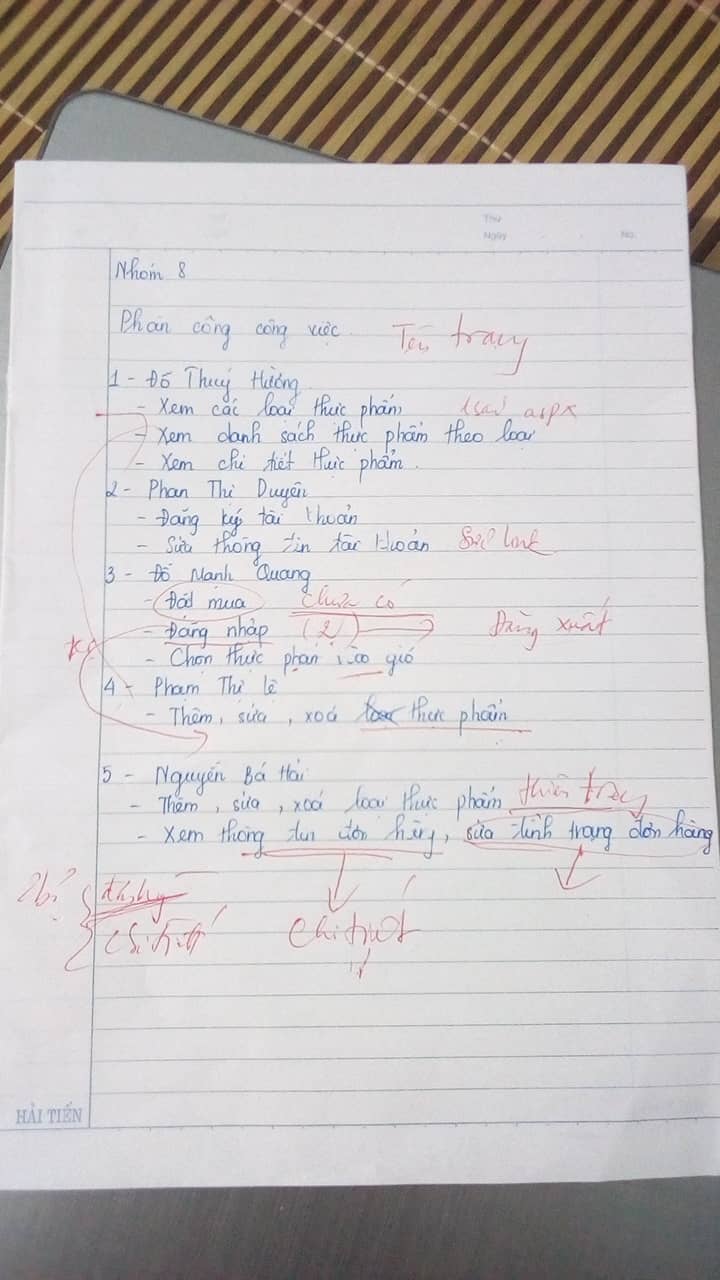 Thứ
Ngày No.
Nhóm 8
Phân công công việc. Tên trang
1 - Đỗ Thuý Hường
- Xem các loại thực phẩm aspx
- Xem danh sách thực phẩm theo loại
- Xem chi tiết thực phẩm.
2 - Phan Thị Duyên
- Đăng ký tài khoản
- Sửa thông tin tài khoản link
3 - Đỗ Mạnh Quang
- Đặt mua chưa có
- Đăng nhập (2) Đăng xuất
- Chọn thực phẩm vào giỏ
4 - Phạm Thị Lê
- Thêm, sửa, xoá thực phẩm
5 - Nguyễn Bá Hải
- Thêm, sửa, xoá loại thực phẩm thiếu trang
- Xem thông tin đơn hàng, sửa tình trạng đơn hàng
Chi tiết Chi tiết
HẢI TIẾN